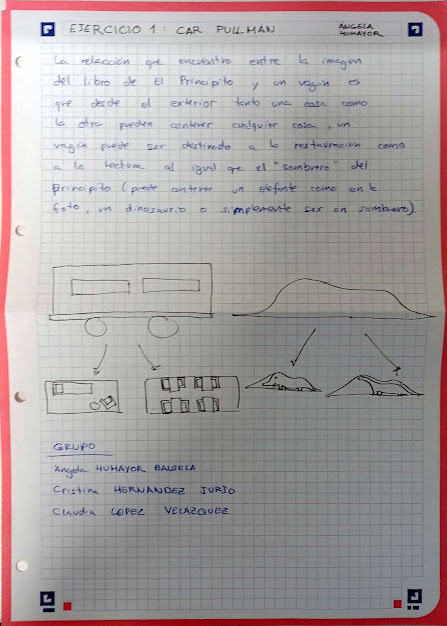 EJERCICIO 1: CAR PULLMAN
ÁNGELA
HUMAYOR
La relacción que encuentro entre la imagen
del libro de El Principito y un vagón es
que desde el exterior tanto una cosa como
la otra pueden contener cualquier cosa, un
vagón puede ser destinado a la restauración como
a la lectura al igual que el "sombrero" del
principito (puede contener un elefante como en la
foto, un dinosaurio o simplemente ser un sombrero).
GRUPO
Ángela HUMAYOR BALSELA
Cristina HERNANDEZ JURJO
Claudia LOPEZ VELAZQUEZ